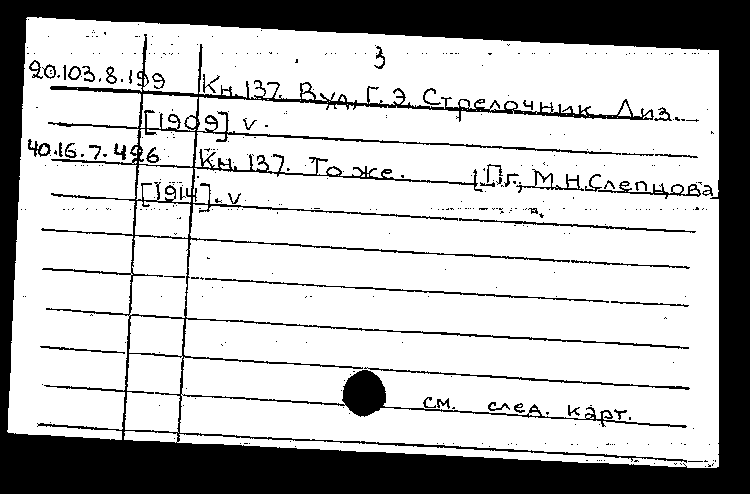 3
20.103.8.199 Кн. 137. Вуд, Г. Э. Стрелочник Лиз.
[1909] v.
40.16.7.426 Кн. 137. То же. [Пг, М.Н.Слепцова
[1914]. v
см. след. карт.